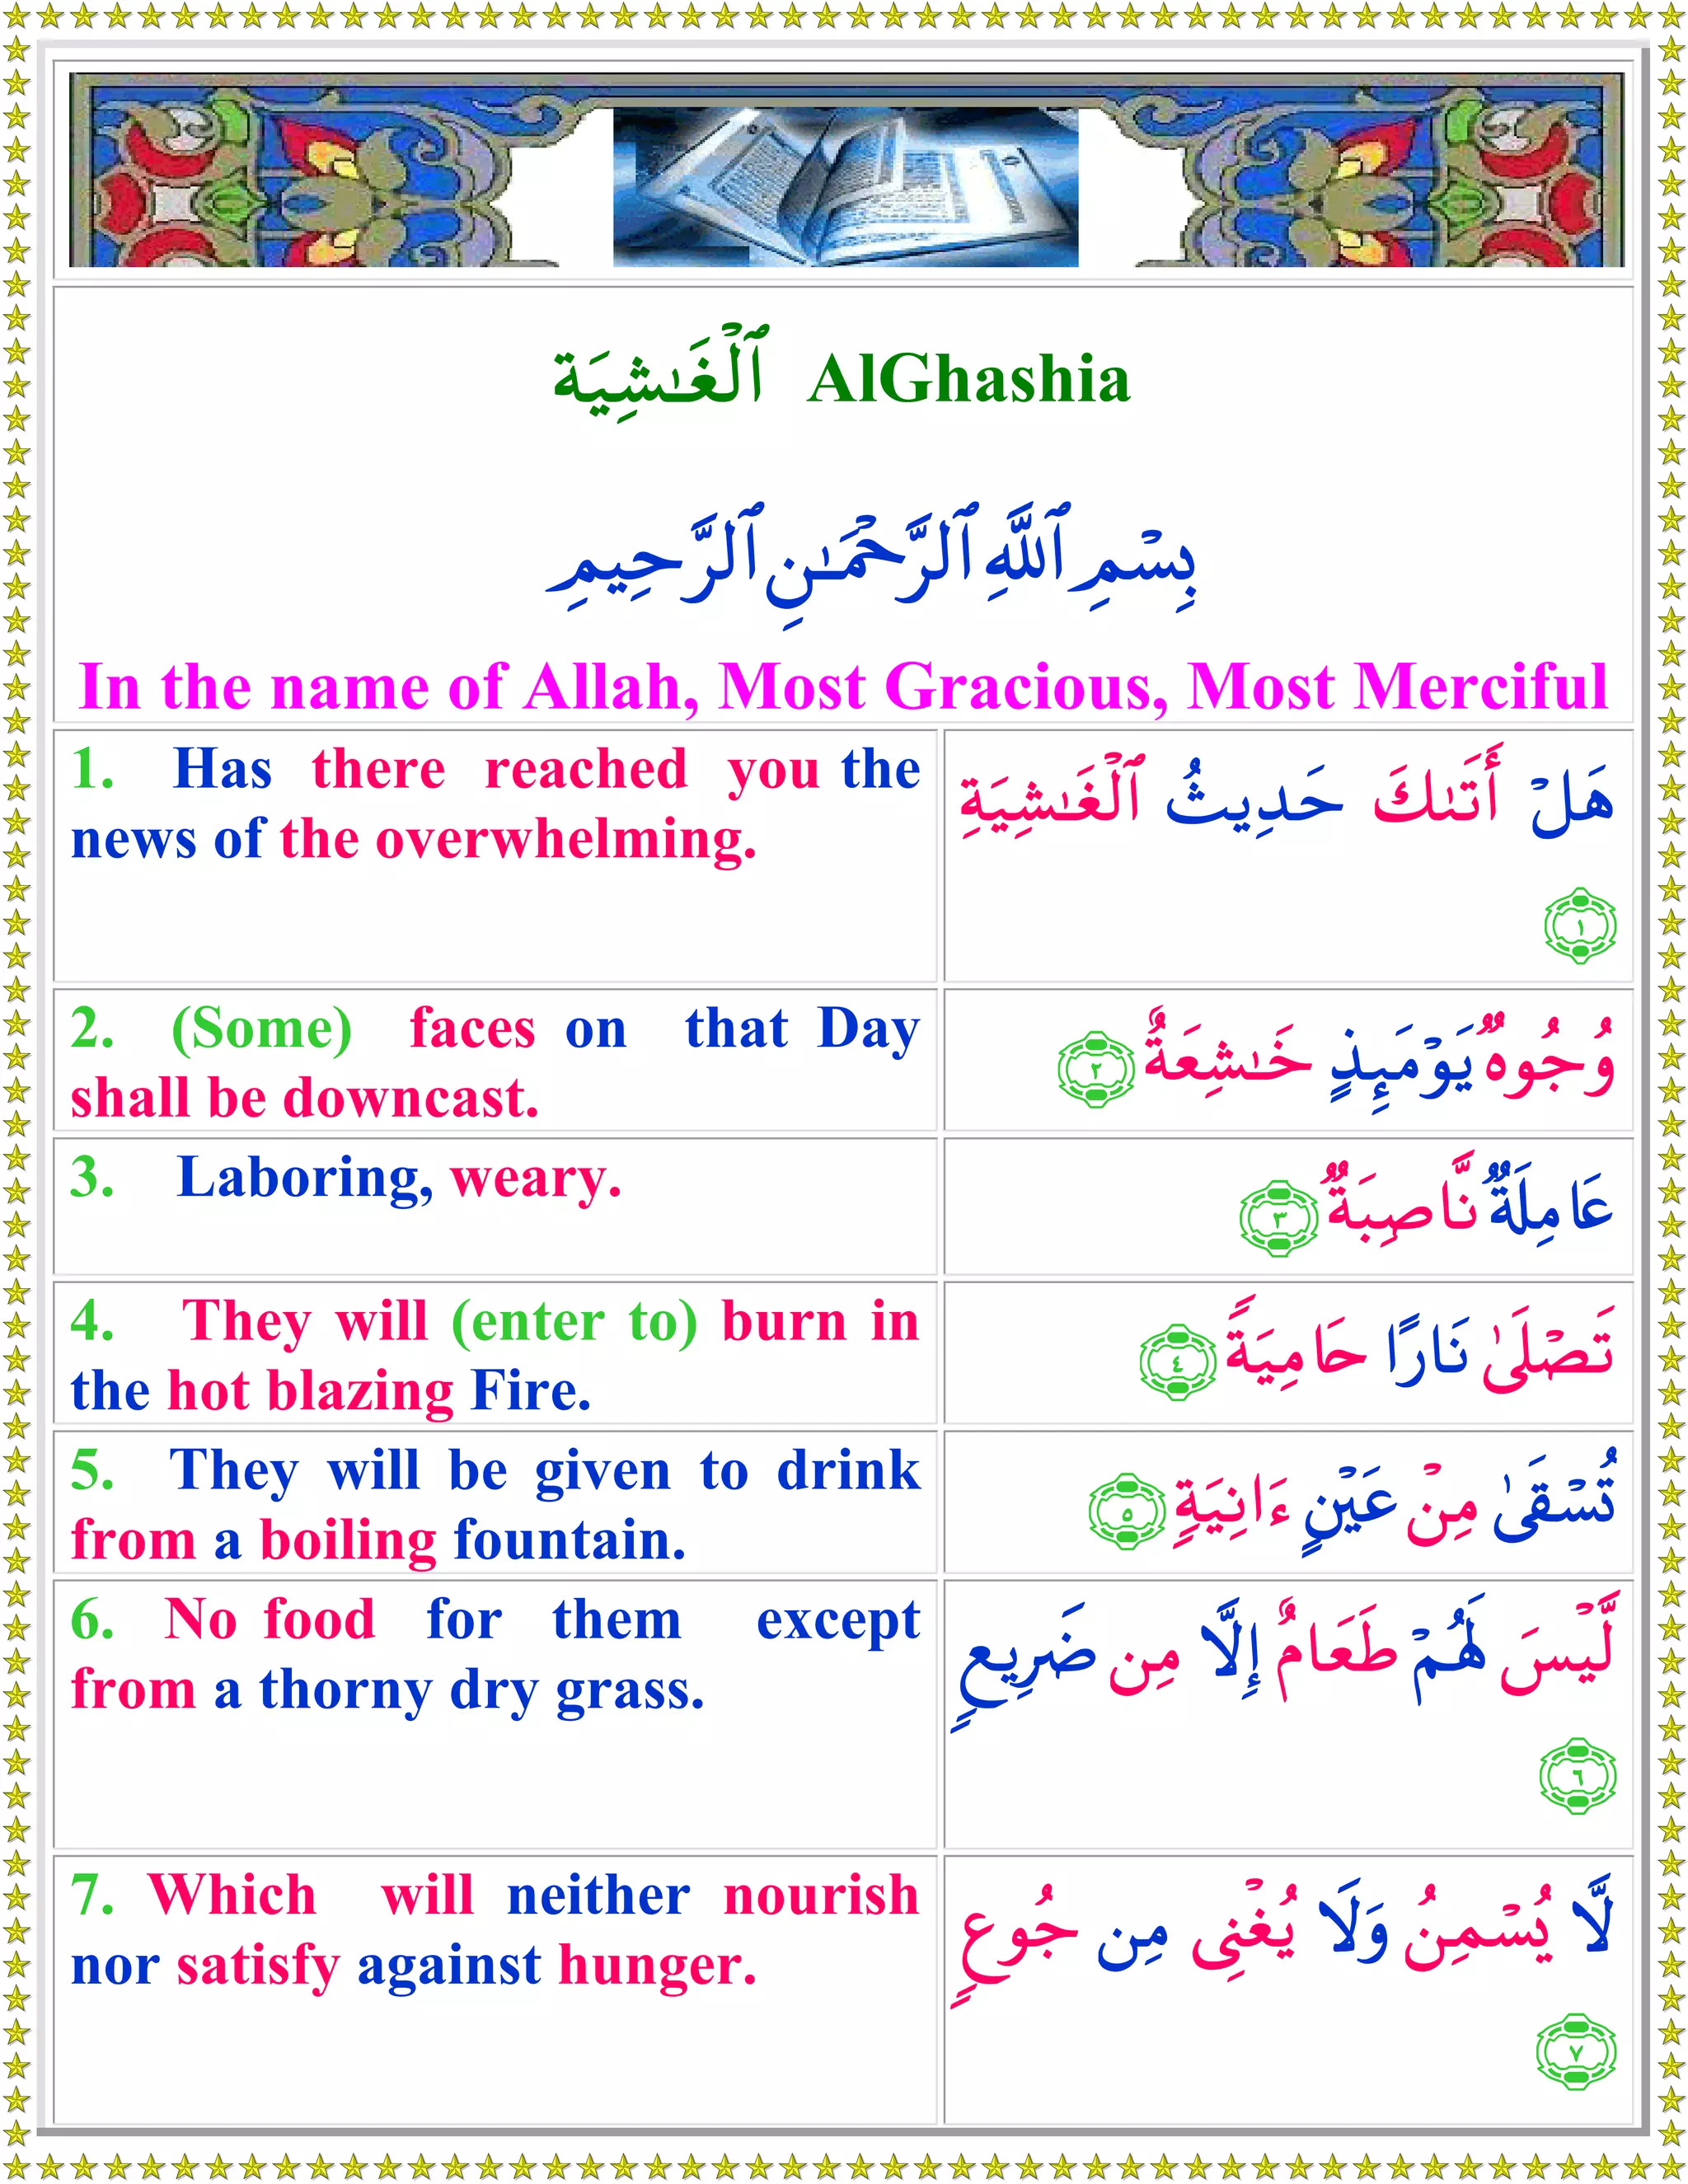 ٱلْغَـٰشِيَة AlGhashia
بِسْمِ ٱللَّهِ ٱلرَّحْمَـٰنِ ٱلرَّحِيمِ
In the name of Allah, Most Gracious, Most Merciful
1. Has there reached you the
news of the overwhelming.
هَلْ أَتَىٰكَ حَدِيثُ ٱلْغَـٰشِيَةِ
١
2. (Some) faces on that Day
shall be downcast.
وُجُوهٌ يَوْمَئِذٍ خَـٰشِعَةٌ ٢
3. Laboring, weary.
عَامِلَةٌ نَّاصِبَةٌ ٣
4. They will (enter to) burn in
the hot blazing Fire.
تَصْلَىٰ نَارًا حَامِيَةً ٤
5. They will be given to drink
from a boiling fountain.
تُسْقَىٰ مِنْ عَيْنٍ ءَانِيَةٍ ٥
6. No food for them except
from a thorny dry grass.
لَّيْسَ لَهُمْ طَعَامٌ إِلَّا مِن ضَرِيعٍ
٦
7. Which will neither nourish
nor satisfy against hunger.
لَّا يُسْمِنُ وَلَا يُغْنِى مِن جُوعٍ
٧